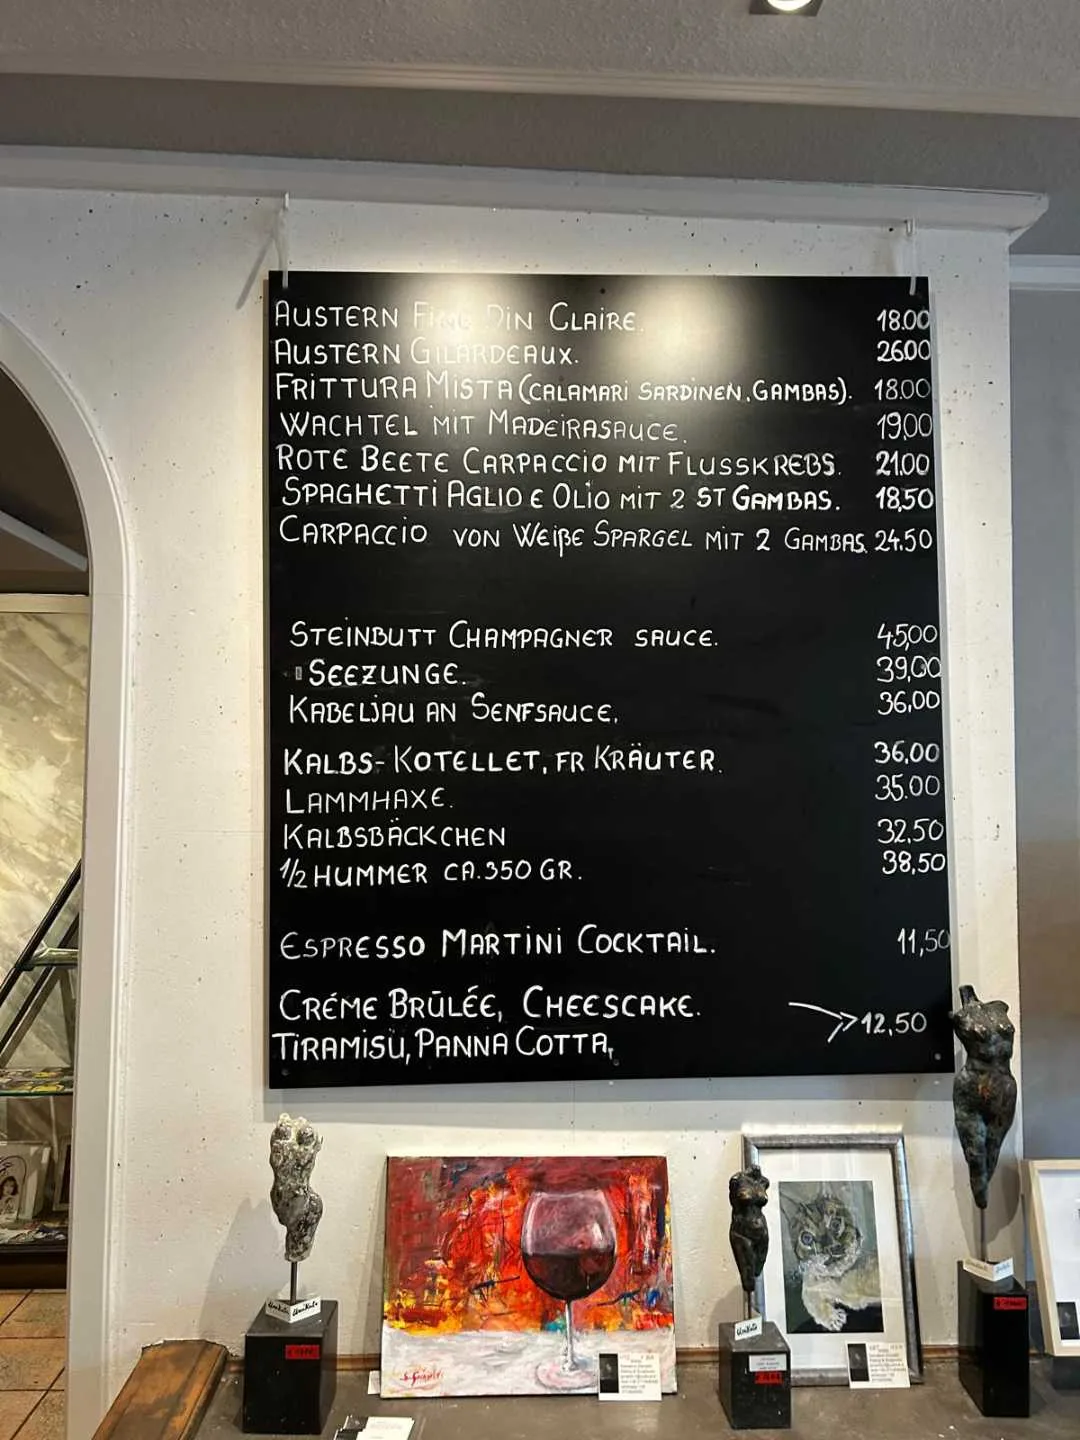 AUSTERN FINE DIN CLAIRE. 18.00
AUSTERN GILARDEAUX. 26.00
FRITTURA MISTA (CALAMARI SARDINEN.GAMBAS). 18.00
WACHTEL MIT MADEIRASAUCE. 19,00
ROTE BEETE CARPACCIO MIT FLUSSKREBS. 21.00
SPAGHETTI AGLIO E OLIO MIT 2 ST GAMBAS. 18,50
CARPACCIO VON WEIßE SPARGEL MIT 2 GAMBAS. 24.50
STEINBUTT CHAMPAGNER SAUCE. 45,00
SEEZUNGE. 39,00
KABELJAU AN SENFSAUCE. 36,00
KALBS-KOTELLET, FR KRÄUTER. 36,00
LAMMHAXE. 35.00
KALBSBÄCKCHEN 32,50
1/2 HUMMER CA.350 GR. 38,50
ESPRESSO MARTINI COCKTAIL. 11,50
CRÉME BRÛLÉE, CHEESCAKE.
TIRAMISÙ, PANNA COTTA, 12,50